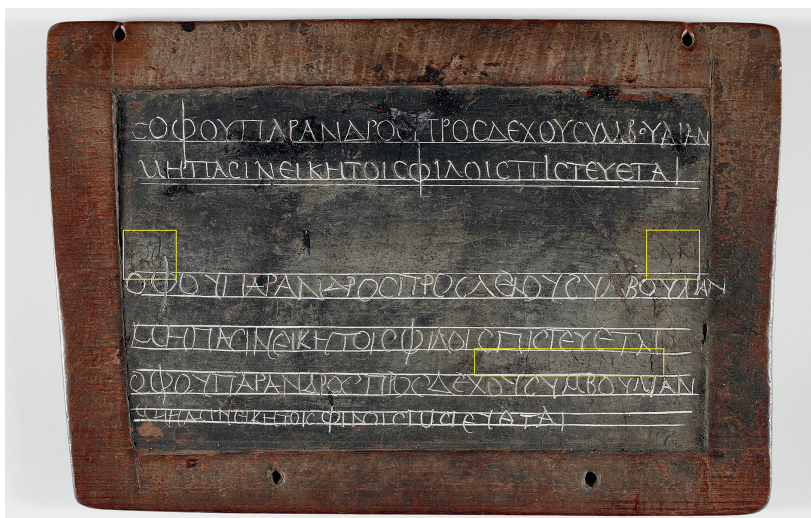 CΟΦΟΥΠΑΡΑΝΔΡΟCΠΡΟCΔΕΧΟΥCΥΜΒΟΥΛΙΑΝ
ΜΗΠΑCΙΝΕΙΚΗΤΟΙCΦΙΛΟΙCΠΙCΤΕΥΕΤΑΙ
ΟΦΟΥΠΑΡΑΝΔΡΟCΠΡΟCΔΕΧΟΥCΥΜΒΟΥΛΙΑΝ
ΜΗΠΑCΙΝΕΙΚΗΤΟΙCΦΙΛΟΙCΠΙCΤΕΥΕΤΑ
ΟΦΟΥΠΑΡΑΝΔΡΟCΠΡΟCΔΕΧΟΥCΥΜΒΟΥΛΙΑΝ
ΜΗΠΑCΙΝΕΙΚΗΤΟΙCΦΙΛΟΙCΠΙCΤΕΥΕΤΑΙ